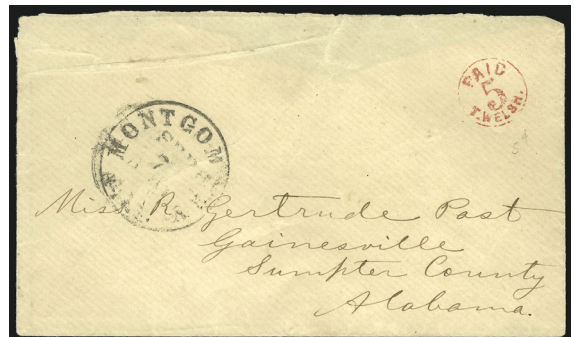 PAID
5
T. WELSH.
5¢
MONTGOM
7
Miss R. Gertrude Post
Gainesville
Sumpter County
Alabama.